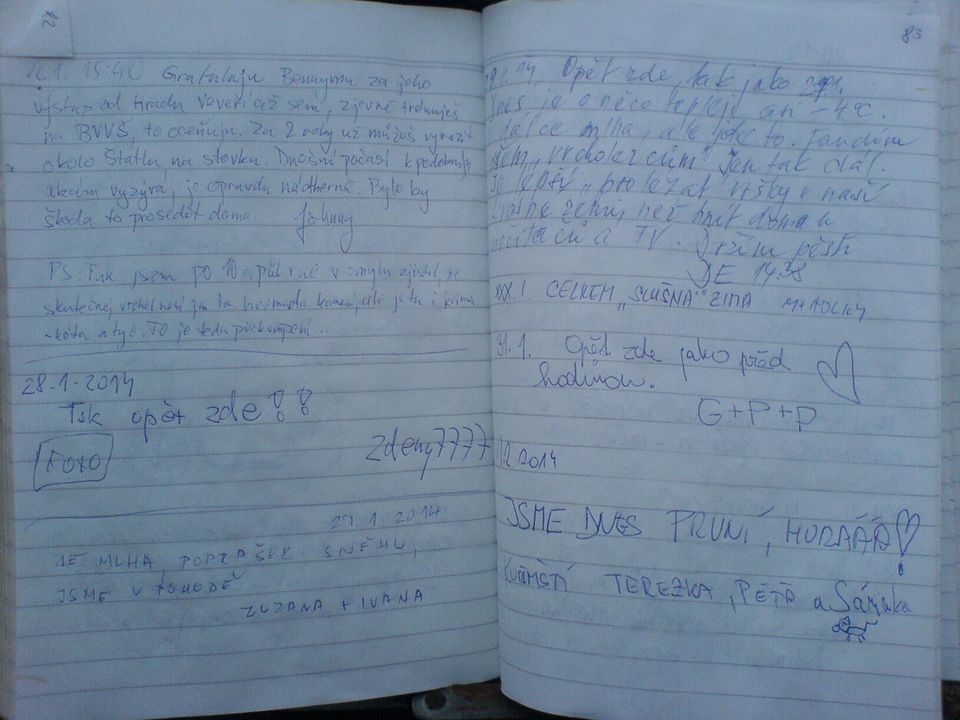 82
15:40 Gratuluju za jeho
výstup od hradu Veveří až sem, zjevně trénuješ
na BVVŠ, to oceňuju. Za 2 roky už můžeš vyrazit
okolo Štatlu na stovku. Dnešní počasí k podobným
akcím vyzývá, je opravdu nádherně. Bylo by
škoda to prosedět doma. Johnny
PS: Tak jsem po v zjistil, že
skutečnej vrchol není ta hromada kamení, ale je tu i
a tyč. TO je teda překvapení..
28.1.2014
Tak opět zde!!
FOTO
zdeny7777
29.1.2014
JE MLHA, POPRAŠEK SNĚHU,
JSME V POHODĚ
ZUZANA + IVANA
83
14 Opět zde, tak jako
je o něco tepleji, ani -4°C.
mlha, ale jde to. Fandím
všem „vrcholařům“ Jen tak dál.
Je lepší „proležat“ v naší
než hnít doma u
a TV. Držím pěsti
14.38
XXX.1. CELKEM „SLUŠNÁ“ ZIMA
31.1. Opět zde jako před
hodinou.
G+P+P
1.2.2014
JSME DNES PRVNÍ, HURÁÁÁ!
TEREZKA, PÉŤA a Sárinka